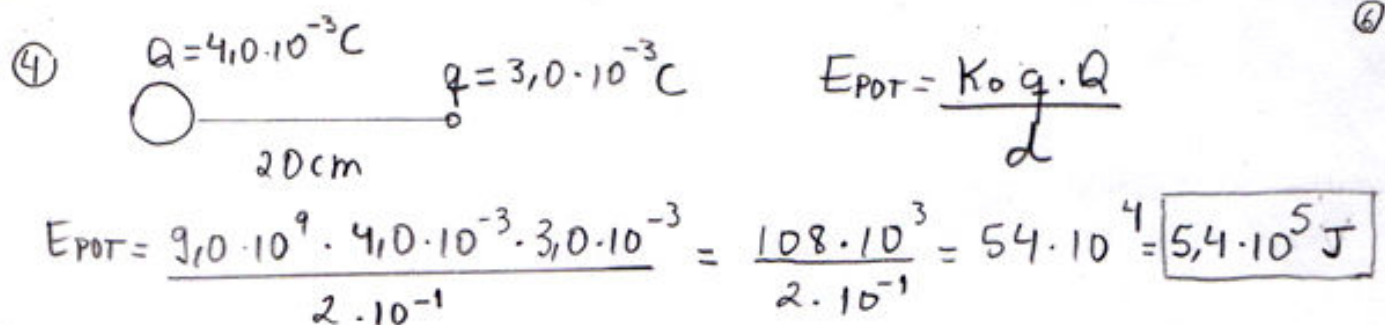 ⑥
④ Q = 4,0·10⁻³C
q = 3,0·10⁻³C
20cm
EPOT = K₀ q·Q / d
EPOT = 9,0·10⁹ · 4,0·10⁻³ · 3,0·10⁻³ / 2·10⁻¹ = 108·10³ / 2·10⁻¹ = 54·10⁴ = 5,4·10⁵ J